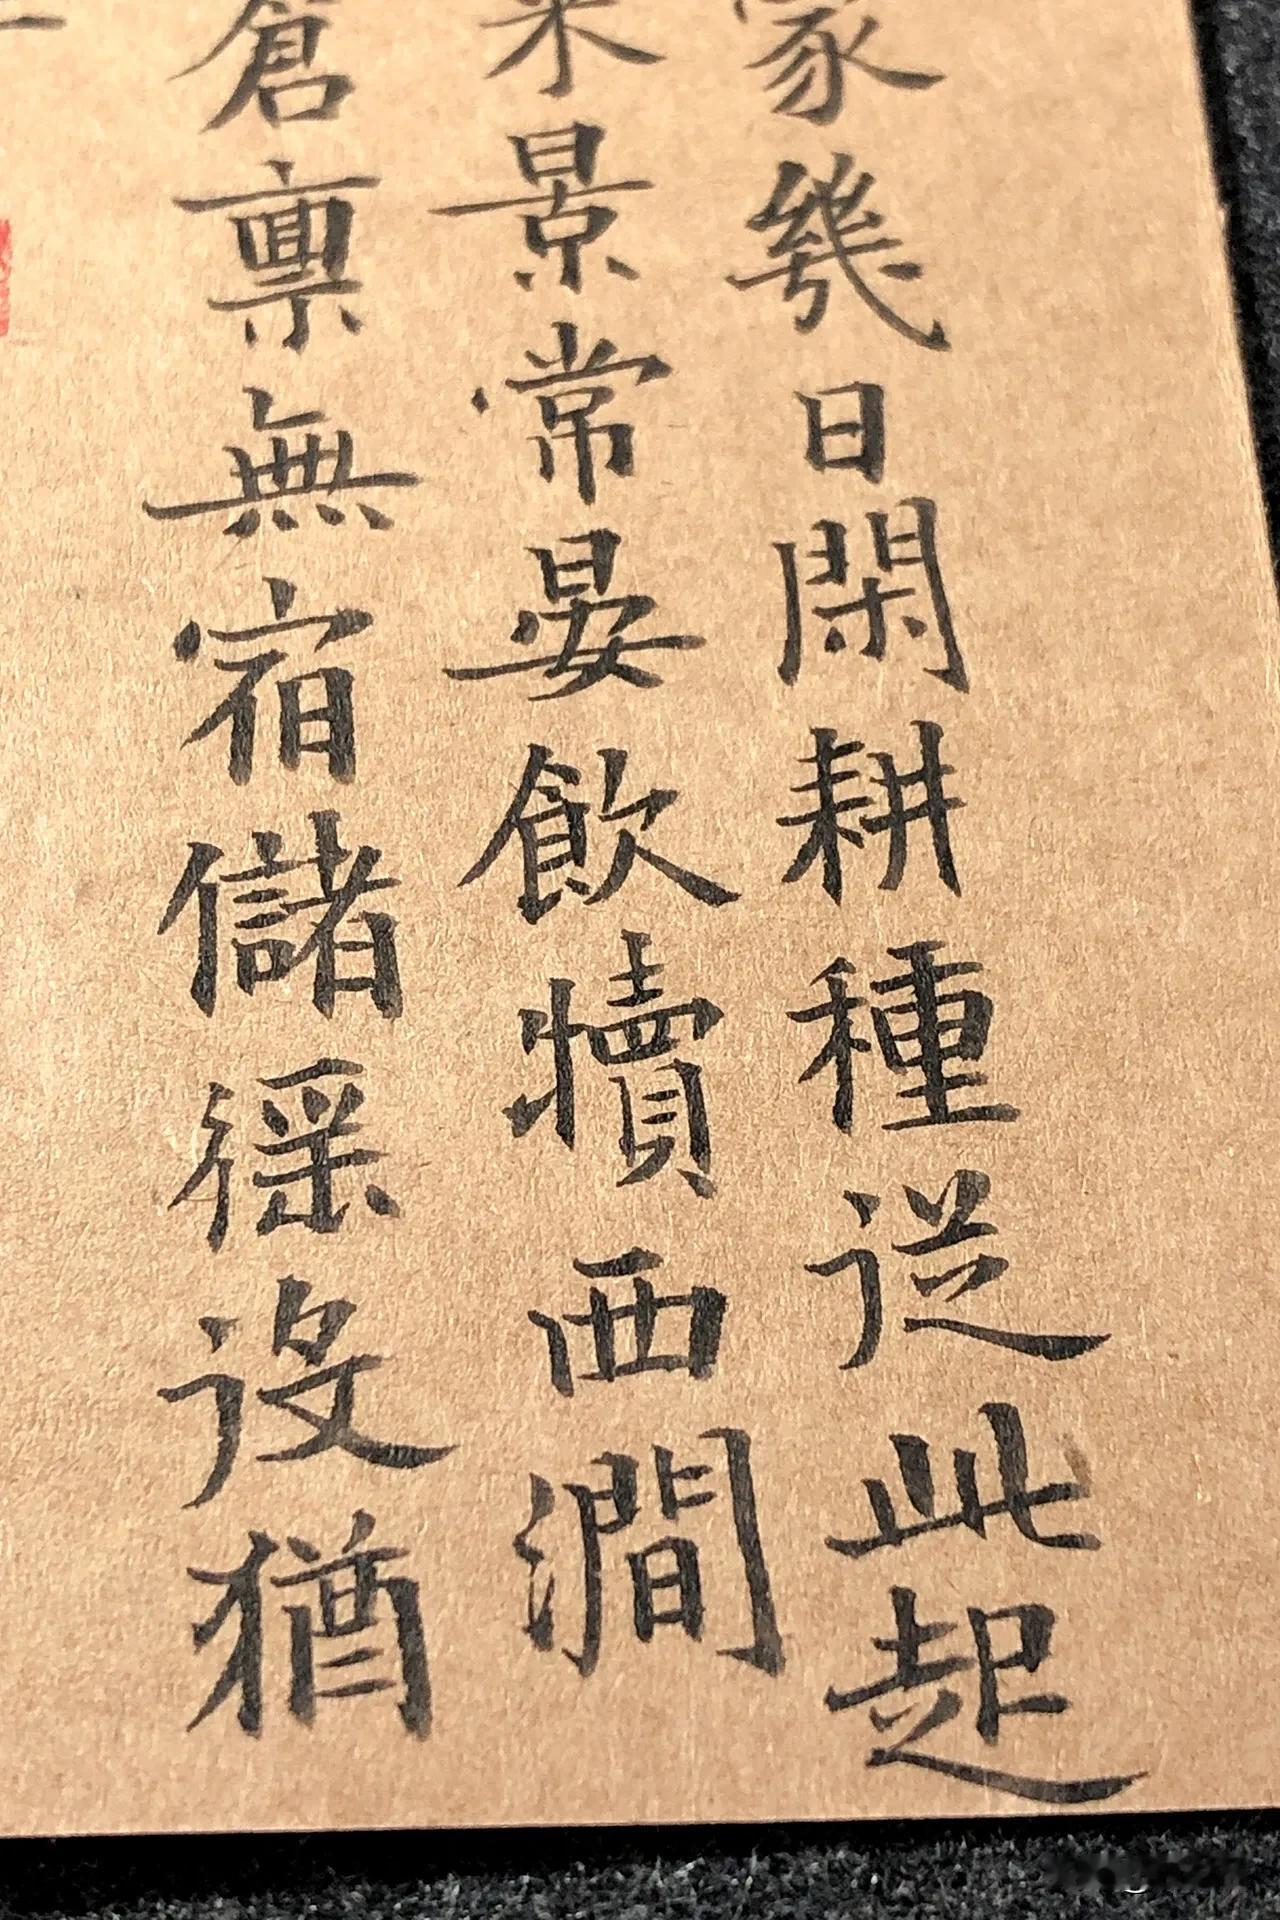 家幾日閑耕種従此起
来景常晏飲犢西澗
倉禀無宿儲徭役猶